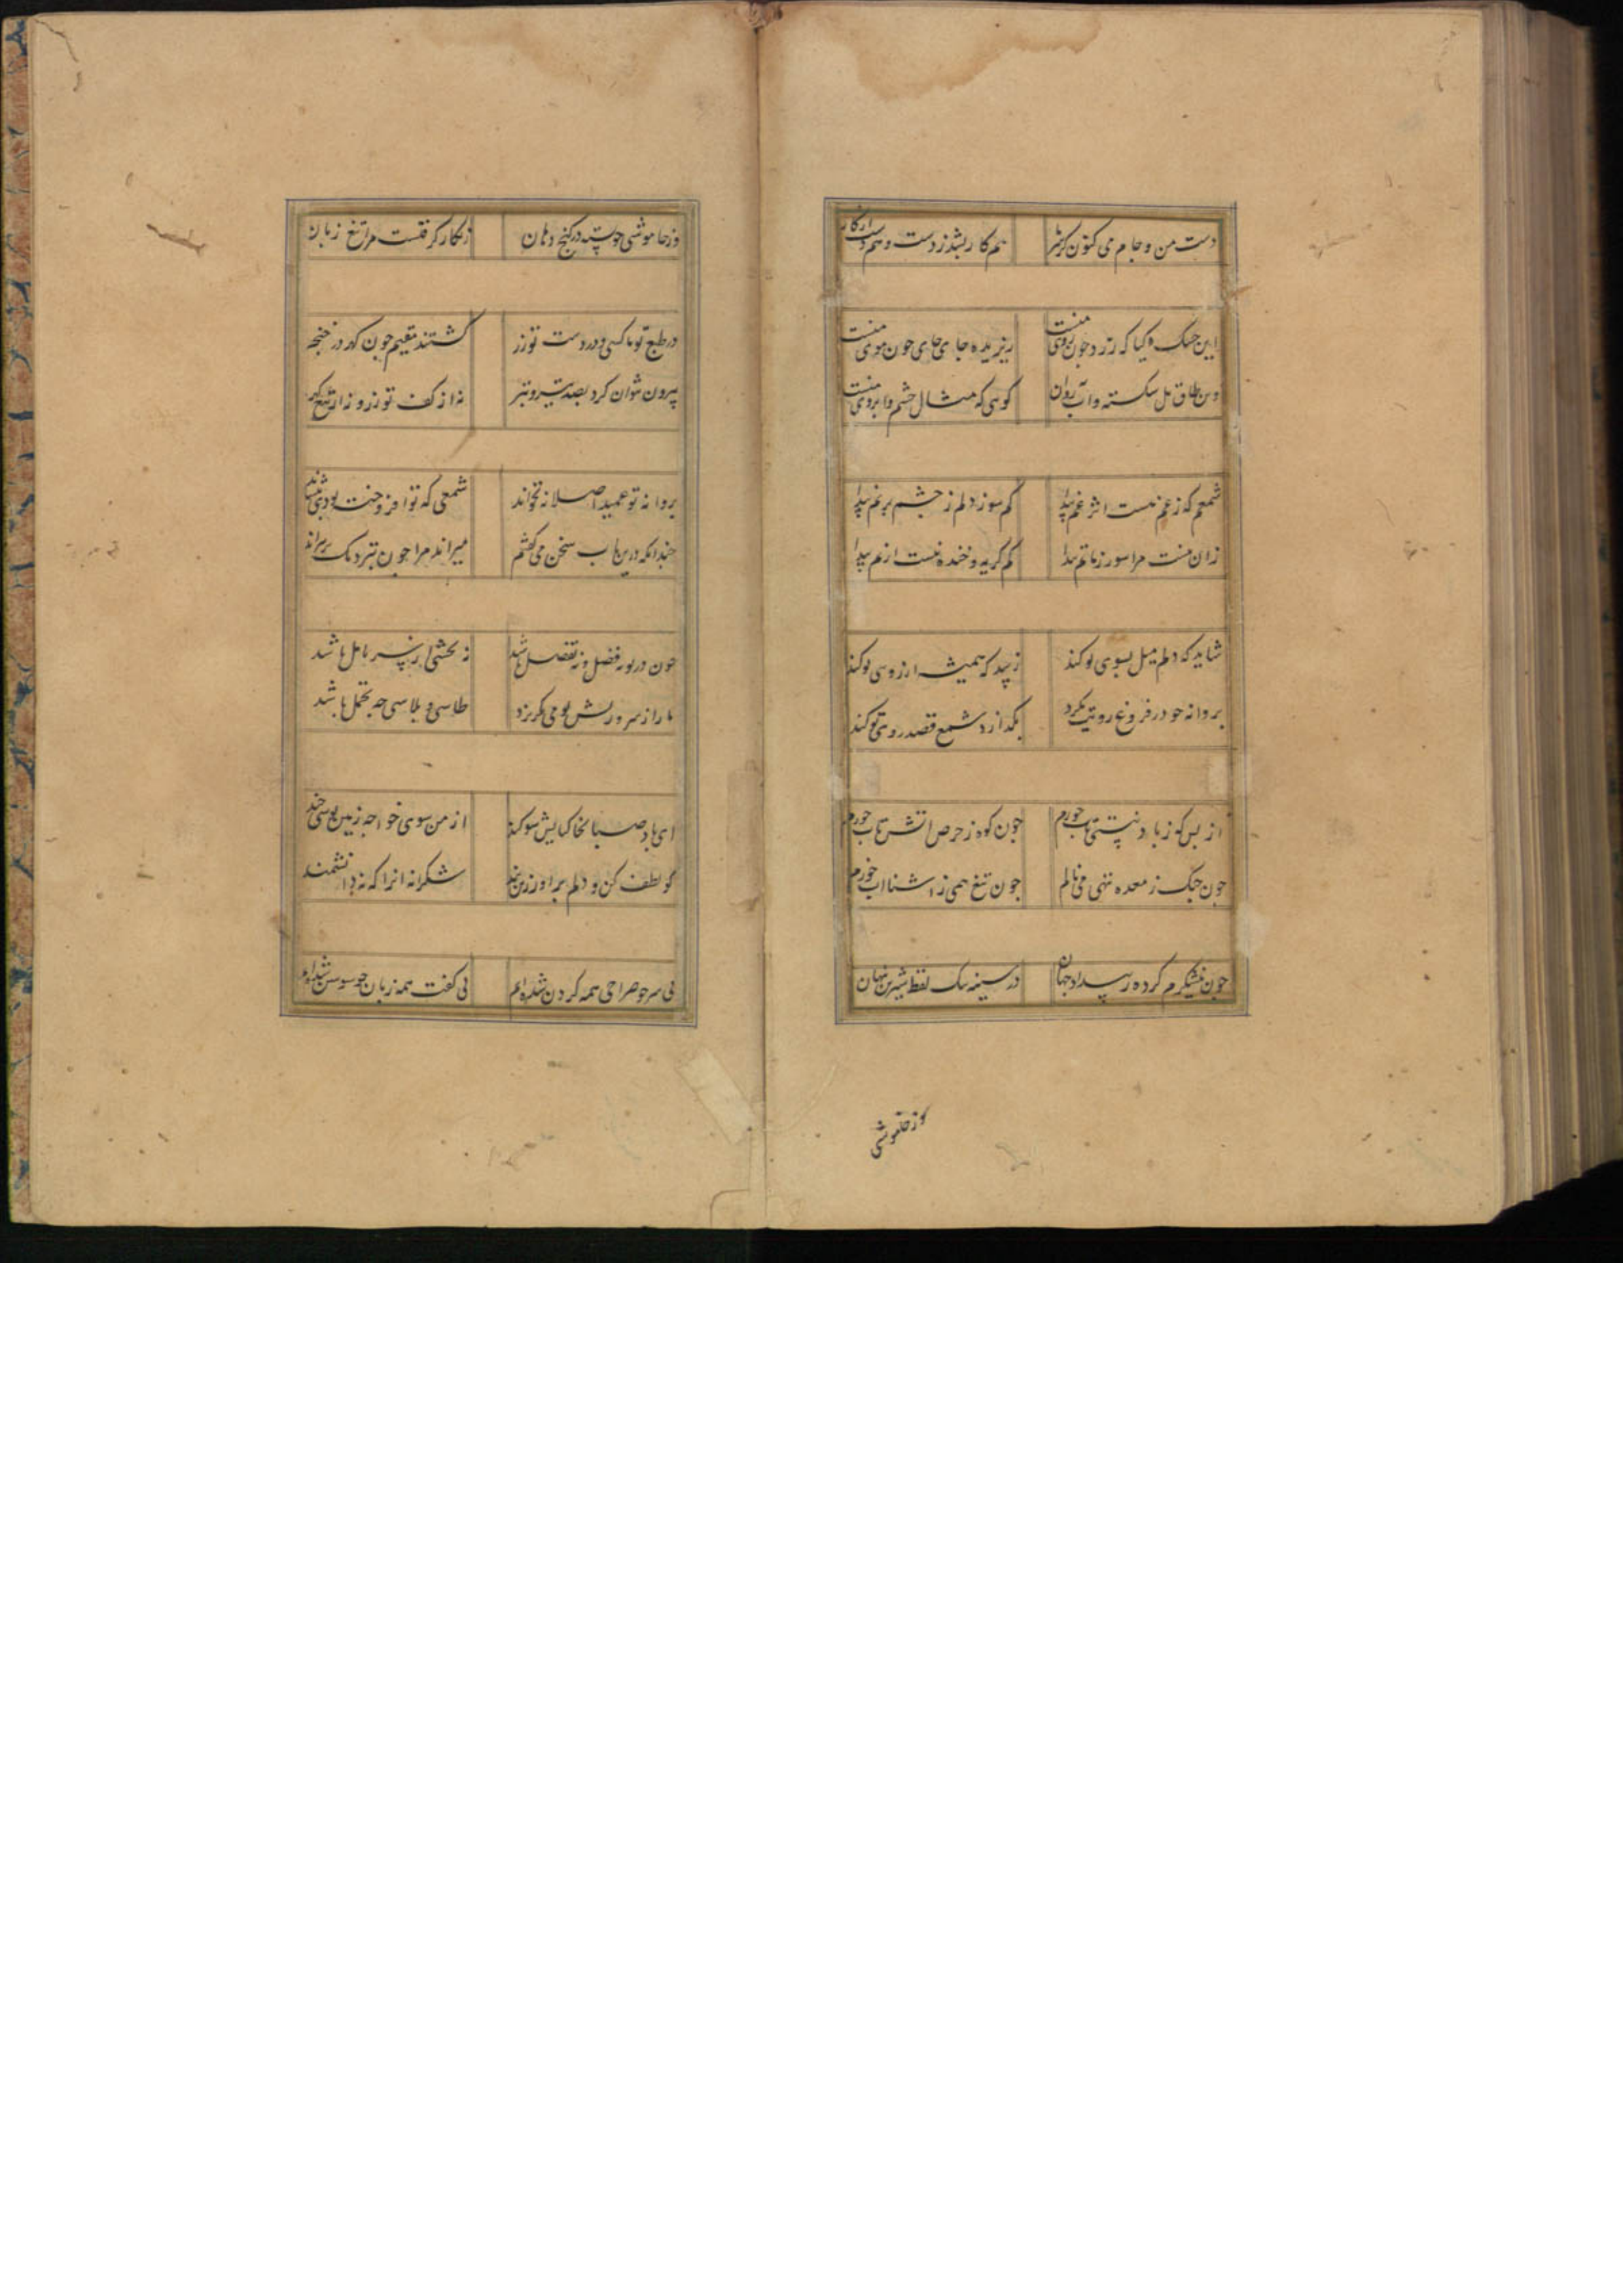 دست من و جام می کنون کز هر کار هم کار بشد ز دست و هم دست از کار
این خشک گیا که زرد چون روی منست ریزیده جای جای چون موی منست
وین طاق پل شکسته و آب روان گویی که مثال چشم و ابروی منست
شمعم که ز غم نیست اثر غم پیدا کم سوز دلم ز چشم پر نم پیدا
زان نیست مرا سور ز ماتم پیدا کم گریه و خنده نیست از هم پیدا
شاید که دلم میل بسوی تو کند زیبد که همیشه ارزوی تو کند
پروانه چو در فروغ رویت نگرد بگذارد شمع و قصد روی تو کند
از بس که ز باد نیستی تاب خورم چون کوه ز حرص اتش ناب خورم
چون چنگ ز معده تهی می نالم چون تیغ همی ز اشنا اب خورم
چون نیشکرم کرده رسید از جهان در سینه تنک لفظ شیرین نهان
وز خاموشی
وز خاموشی چو پسته در کنج دهان زنکار گرفتست مرا تیغ زبان
در طبع تو ماکسی و در دست تو زر گشتند مقیم چون گهر در خنجر
بیرون نتوان کرد بصد تیر و تبر نه از کف تو زر و نه از تیغ گهر
پروانه تو عمید اصلا نه بخواند شمعی که تو افروخته بودی بنشاند
چندانکه درین باب سخن می گفتم میراند مرا چون تبر و یک بر براند
چون در تو نه فضل و نه تفضل باشد نه بخشش و نه سر تامل باشد
ما را ز سر و ریش تو می بگریزد طاسی و پلاسی چه تجمل باشد
ای باد صبا بخاکپایش سوگند از من سوی خواجه زمین بوسی چند
گو لطف کن و دلم براور زین بند شکرانه انرا که نه دانشمند
بی سر چو صراحی همه گردن شده ام بی گفت همه زبان چو سوسن شده ام